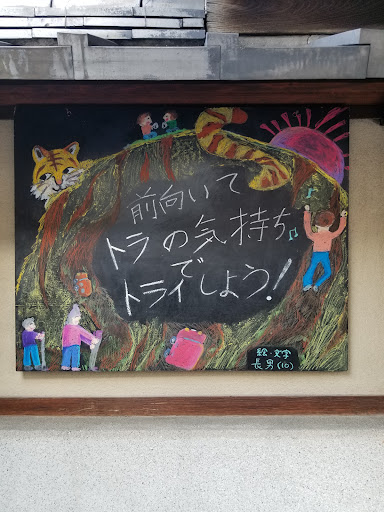 前向いて
トラの気持ち
で
トライしよう!
絵・文字
長男(10)